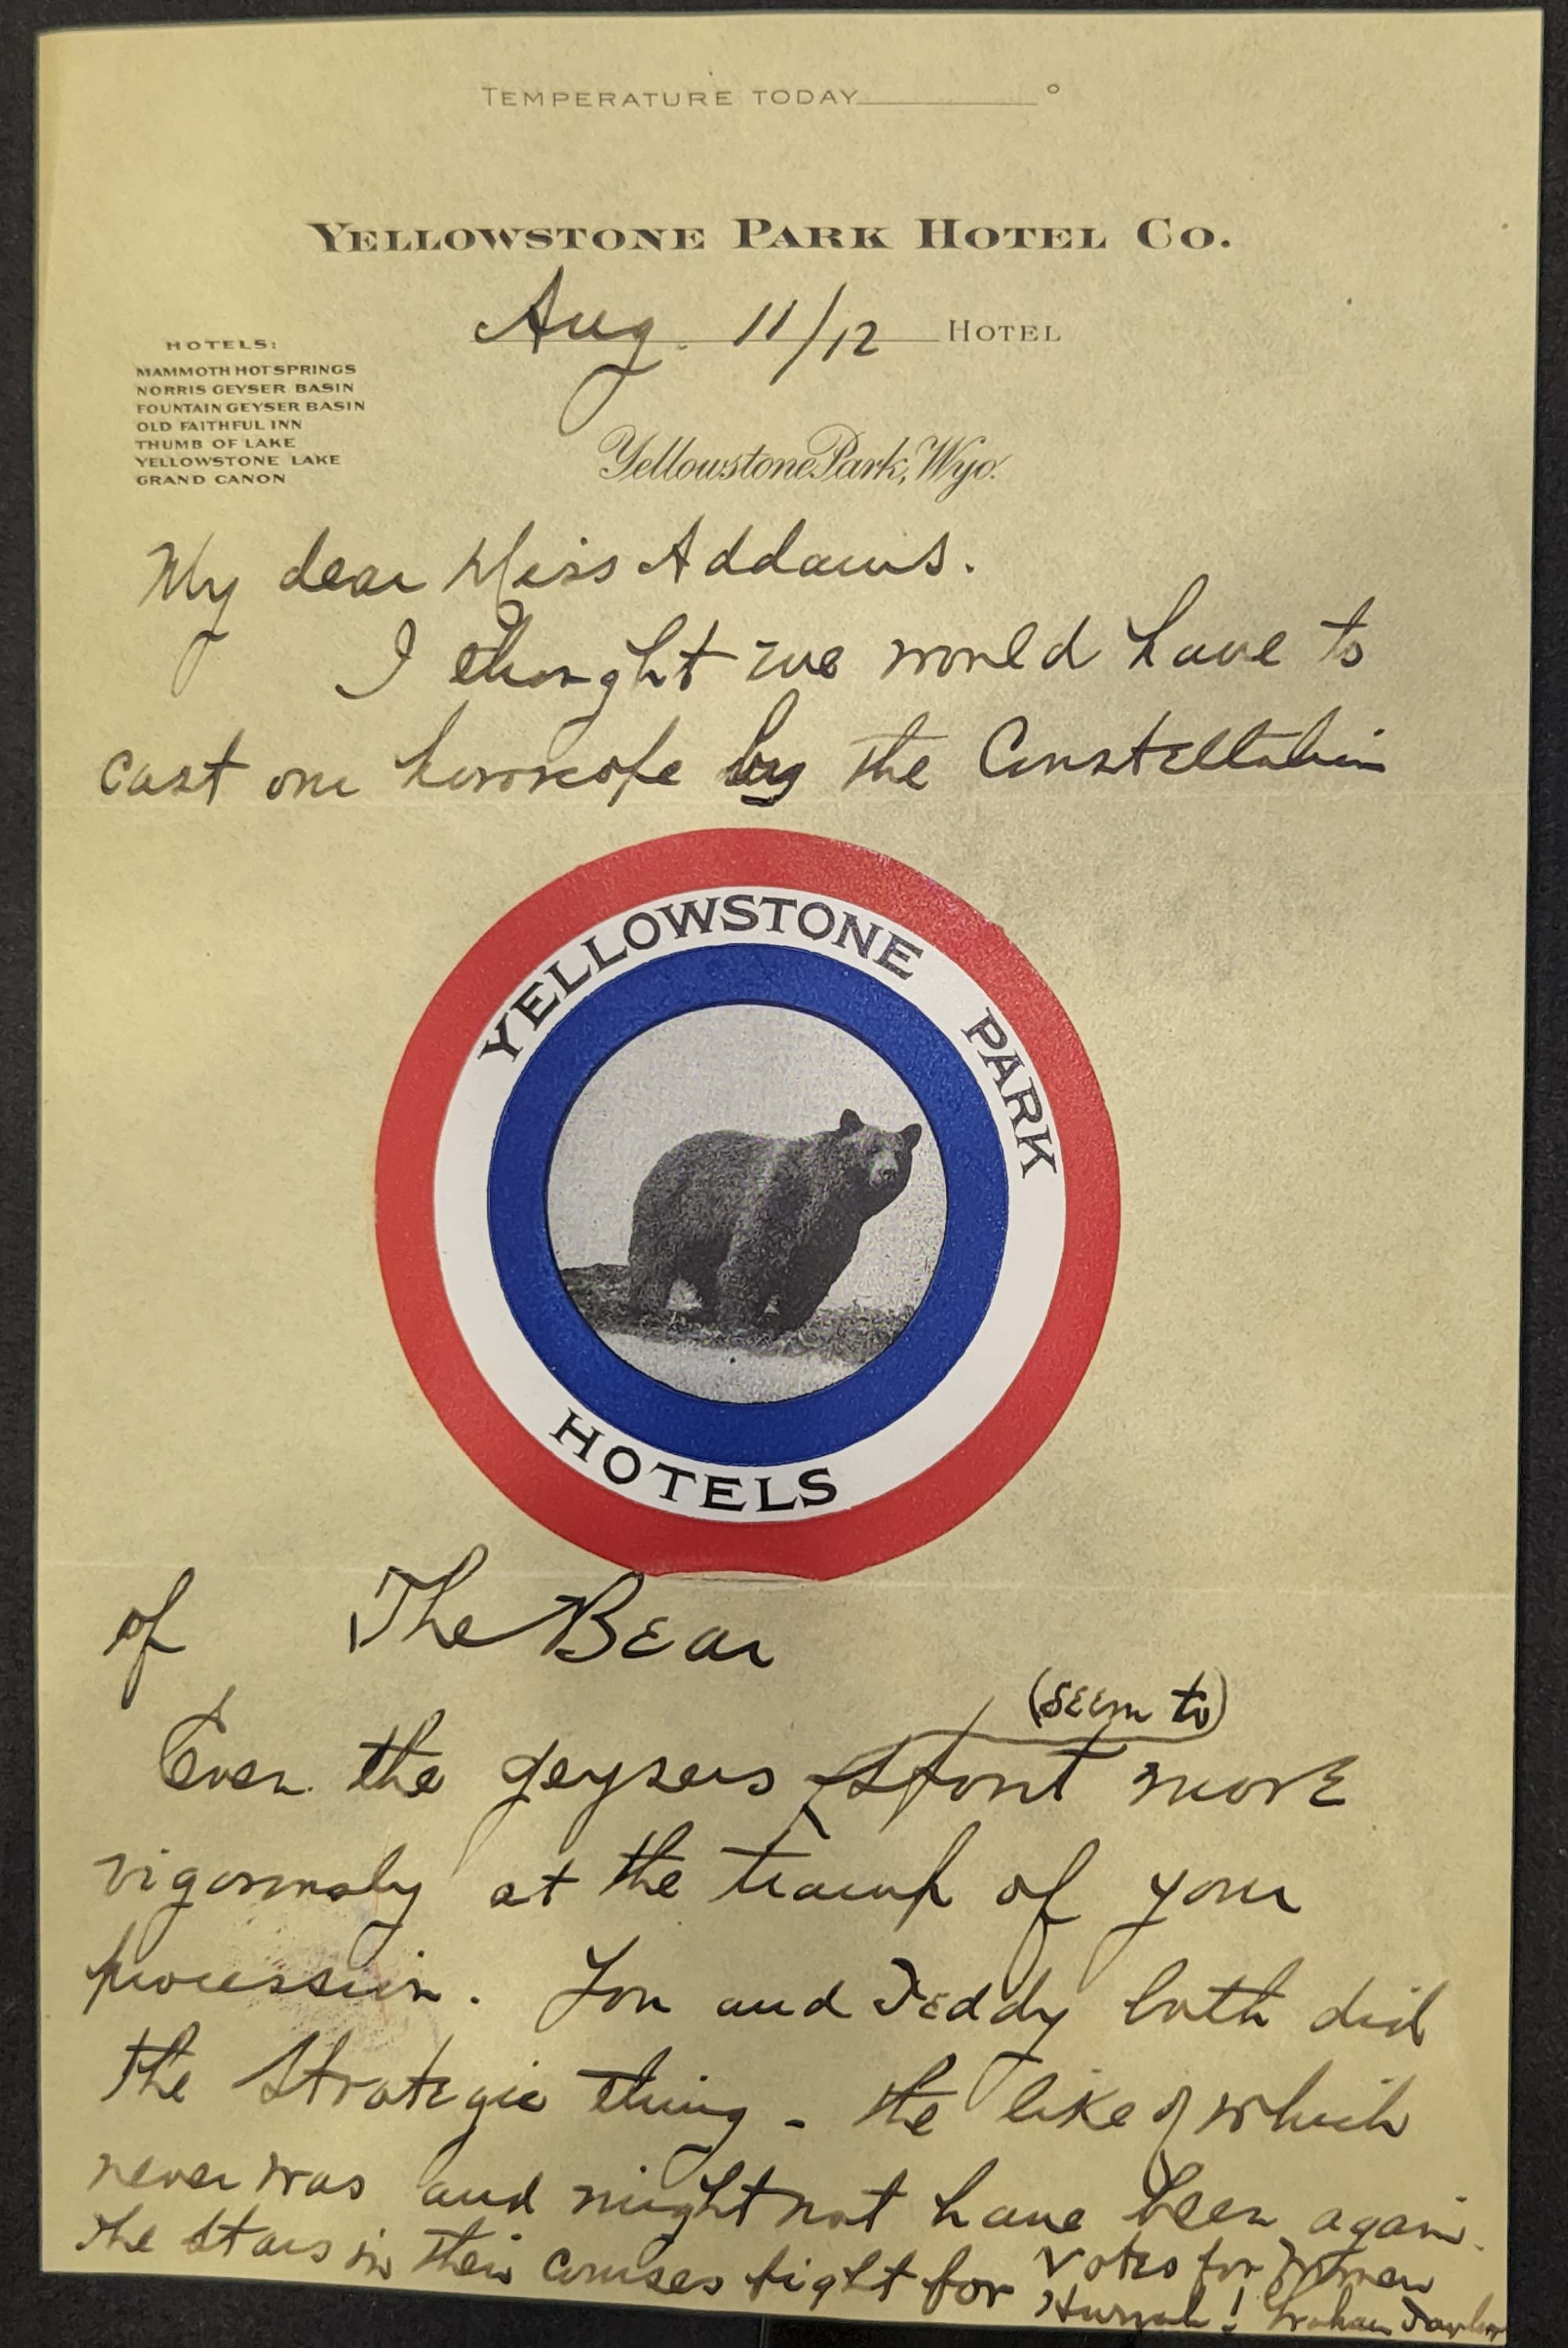 TEMPERATURE TODAY °
YELLOWSTONE PARK HOTEL CO.
Aug. 11/12 HOTEL
HOTELS:
MAMMOTH HOT SPRINGS
NORRIS GEYSER BASIN
FOUNTAIN GEYSER BASIN
OLD FAITHFUL INN
THUMB OF LAKE
YELLOWSTONE LAKE
GRAND CANON
Yellowstone Park, Wyo.
My dear Miss Addams.
I thought we would have to
cast our horoscope by the Constellation
YELLOWSTONE PARK
HOTELS
of The Bear
(seem to)
Even the geysers spout more
vigorously at the tramp of your
procession. You and Teddy both did
the strategic thing - the like of which
never was and might not have been again.
The stars in their courses fight for Votes for Women
Hurrah! Graham Taylor